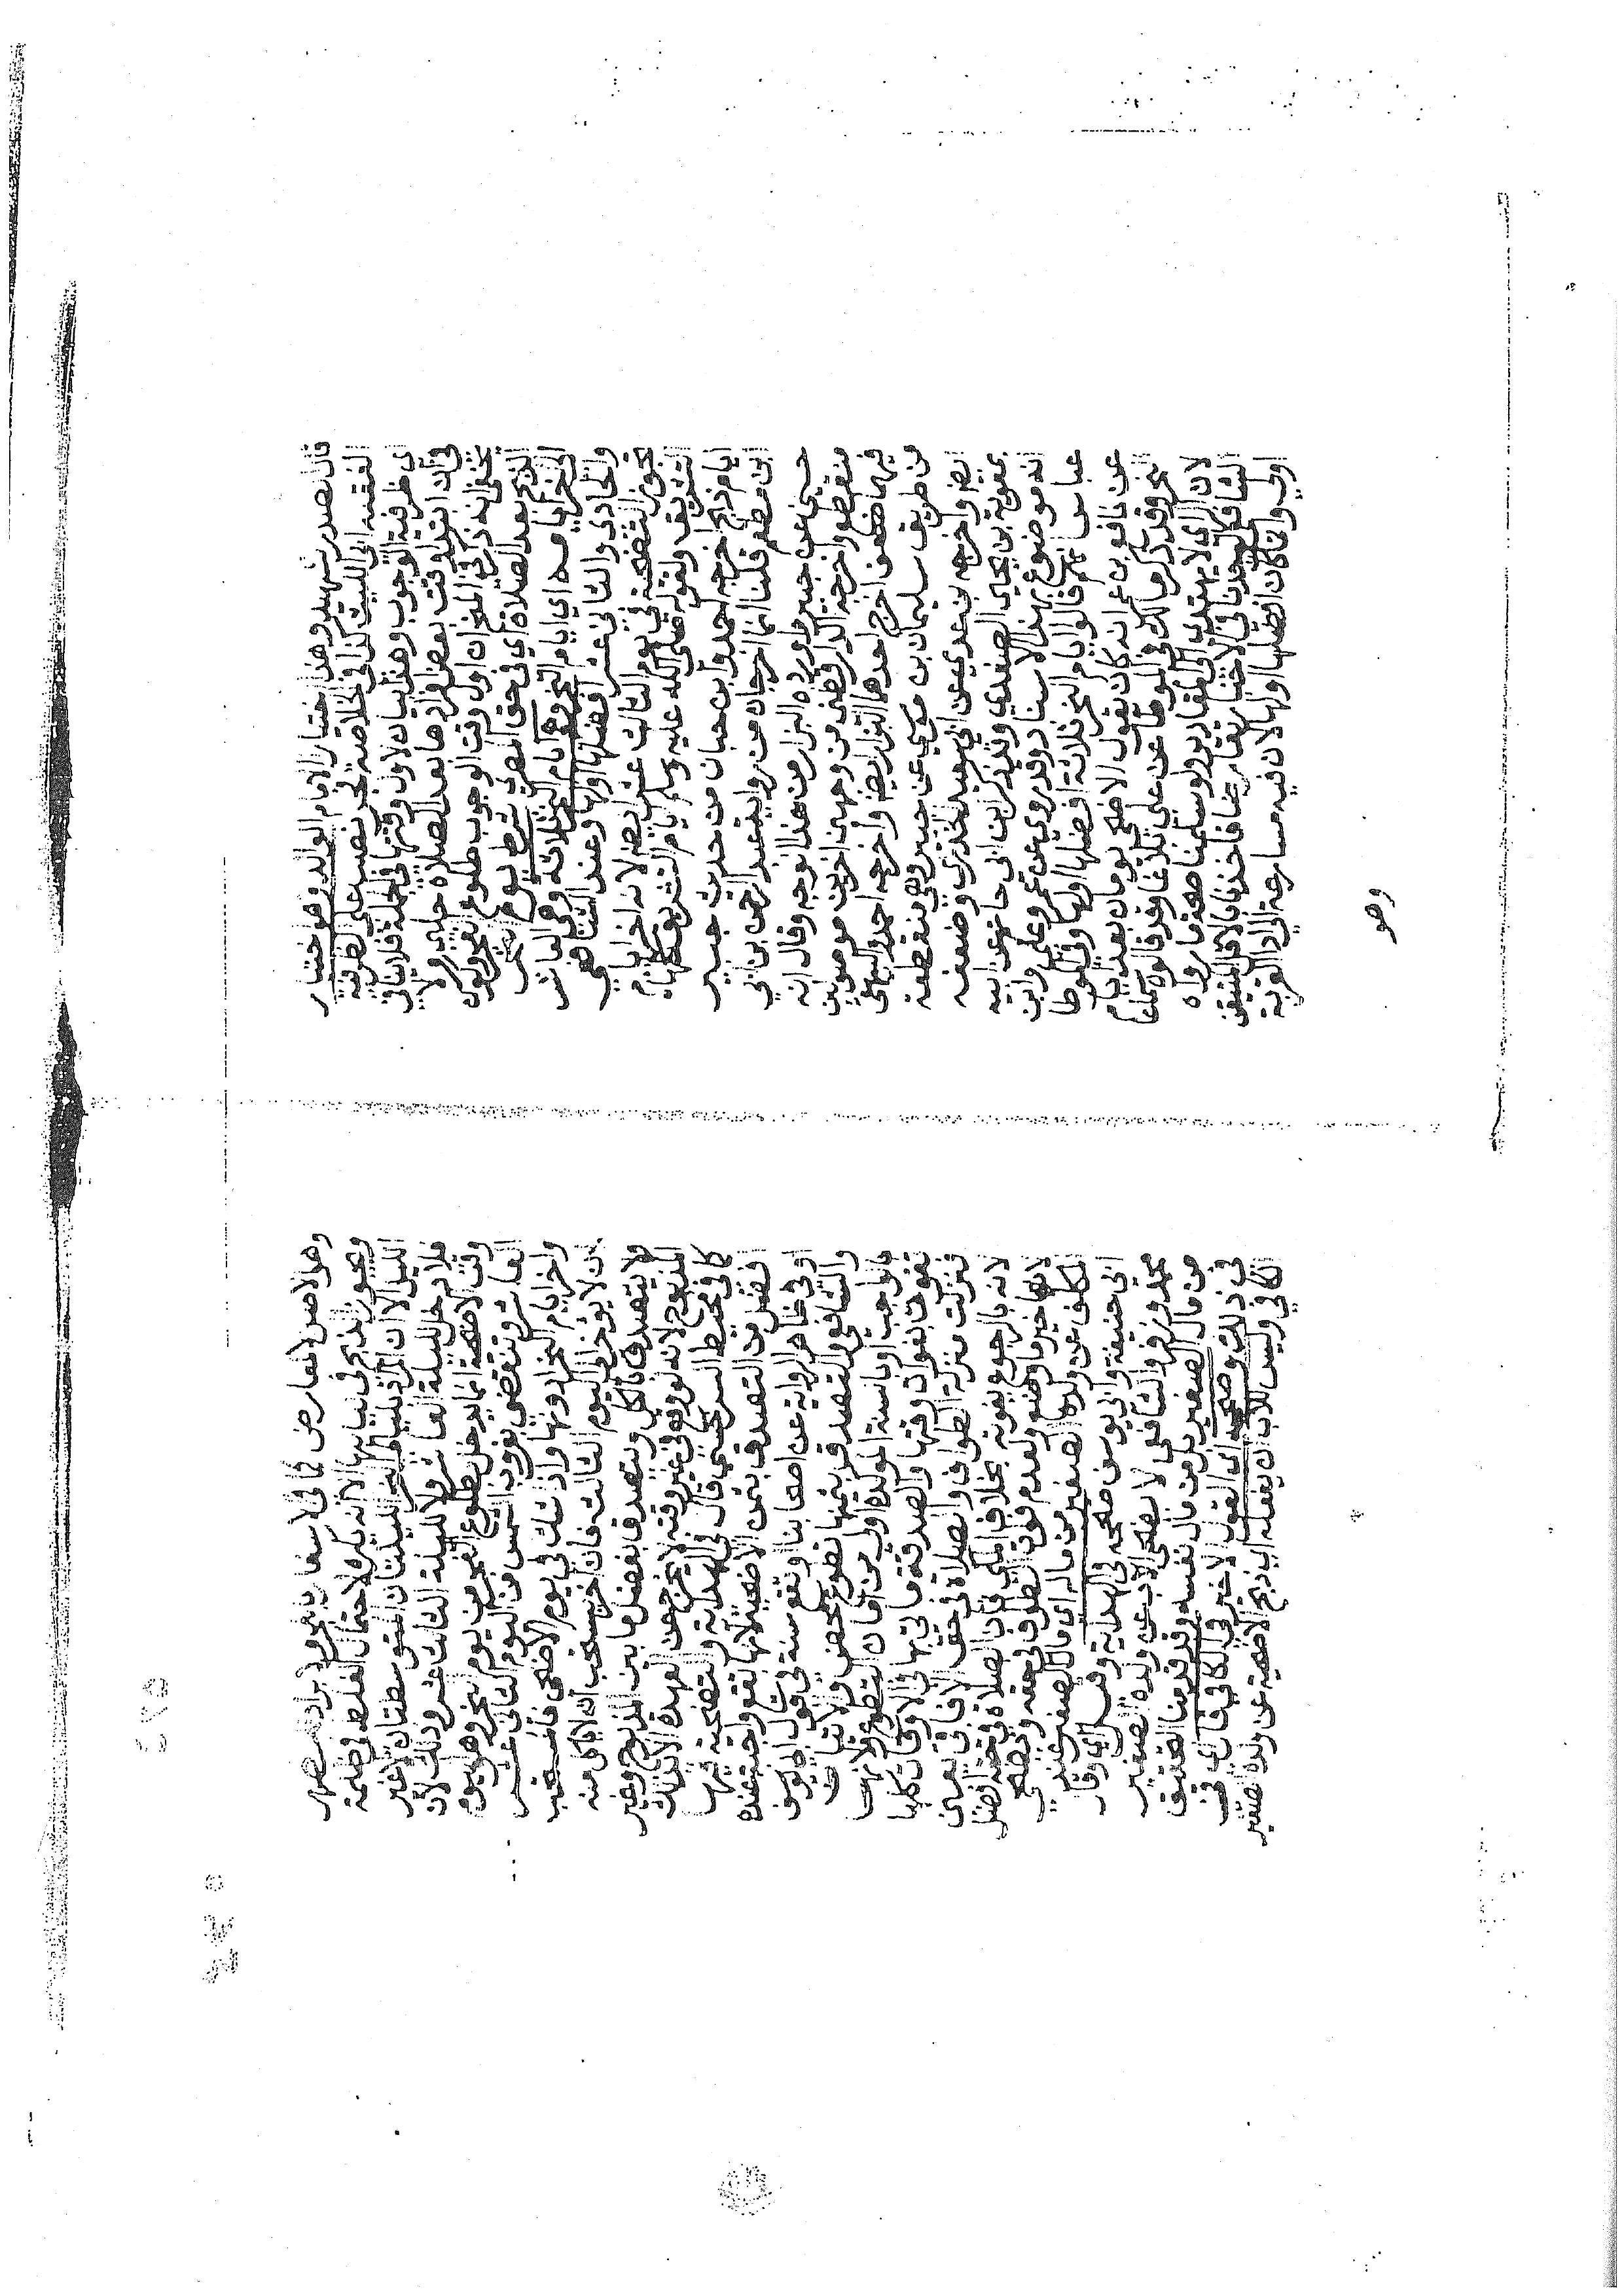 قال الصدر الشهيد وهذا اختيار الامام الوالد وهو اختيار
الفقيه ابي الليث كذا في الخلاصة فجر نصب على الظرفية
اي ظرفية الوجوب وهذا بيان لاول وقتها في الجملة فلا ينافي
في ان ابتداء وقت بعض افرادها بعد الصلاة حلبي ولا
يخفى انه ذكر في المتن ان اول وقت الوجوب طلوع الفجر ويكون
الذبح بعد الصلاة اي في حق المصري شرط يوم النحر
الى اخر ايامه اي ايام النحر وهي ايام النحر ثلاثة وهي العاشر
والحادي والثاني عشر افضلها اولها وعند الشافعي
يجوز التضحية في يوم الثالث عشر ايضا لانه اخر ايام
التشريق ولقوله صلى الله عليه وسلم ايام التشريق كلها
ايام ذبح اخرجه احمد وابن حبان من حديث جبير
بن مطعم قلنا انما اخرجاه من رواية عبد الرحمن بن ابي
حسين عن جبير واورده البزار من هذا الوجه وقال انه
منقطع واخرجه الدارقطني من وجهين اخرين موصولين
فيهما ضعف اخرج احدهما البزار ايضا واخرجه احمد والبيهقي
من طريق سليمان بن موسى عن جبير وهي منقطعة
ايضا واخرجه ابن عدي عن ابي سعيد الخدري وضعفه
بمعوية بن يحيى الصدفي وذكر ابن ابي حاتم عن ابيه
انه موضوع بهذا الاسناد وقد روي عن عمر وعلي وابن
عباس انهم قالوا ايام النحر ثلاثة افضلها اولها وفي الموطا
عن نافع بن عمر انه كان يقول الاضحى يومان بعد يوم
النحر وقد ذكر مالك في الموطا عن علي بلاغا وقد قالوه سماعا
لان الراي لا يهتدي الى المقادير ولو سلمنا صحة ما رواه
الشافعي وجدنا في الاخبار تعارضا فاخذنا بالاقل المتيقن
اولى وانما كان افضلها اولها لان فيه مسارعة الى اداء القربة
وهو
وهو الاصل لا لمعارض كما في الاسفار بالفجر والابراد بالظهر
ويجوز الذبح في لياليها الا انه يكره لاحتمال الغلط في ظلمة
الليل الا ان المراد بلياليها الليلتان المتوسطتان لا غير
فلا دخل لليلة العاشر ولا لليلة الثالث عشر وذلك لان
وقت الاضحية انما يدخل بطلوع الفجر من يوم النحر وهو يوم
العاشر وينقضي بغروب الشمس من اليوم الثاني عشر
واخر ايام النحر ادونها واذا شك في يوم الاضحى فالمستحب
ان لا يؤخر الى اليوم الثالث فان اخر يستحب ان لا ياكل منه
ولا يتصدق بالكل ويتصدق بفضل ما بين المذبوح وغير
المذبوح لانه لو وقع في غير وقته لا يخرج عن العهدة الا بذلك
كما في محيط السرخسي قال في الهداية والتضحية فيها
افضل من التصدق بثمن الاضحية لانها تقع واجبة عنده
او في ظاهر الرواية عن اصحابنا او تقع سنة في قول ابي يوسف
والشافعي والتصدق بثمنها تطوع محض والاتيان
بالواجب او بالسنة الموكدة اولى من اتيان التطوع ولانها
تفوت بفوات وقتها والصدقة ياتي بها في الاوقات كلها
فنزلت منزلة الطواف والصلاة في حق الافاقي يعني
لانه بالرجوع يفوته بخلاف المكي فان الصلاة في حقه افضل
لانها خير موضوع ولعدم فوات الطواف في حقه ويضحي
المكلف عن ولده الصغير من ماله اي مال الصغير عند
ابي حنيفة وابي يوسف صححه في الهداية وقيل اي وقال
محمد وزفر والشافعي لا يضحي الاب عن ولده الصغير
من مال الصغير بل من مال نفسه وقد قدمنا التحقيق
في ذلك وصحح اي القول الاخير في الكافي قال اي في
الكافي وليس للاب ان يفعله اي ذبح الاضحية عن ولده الصغير